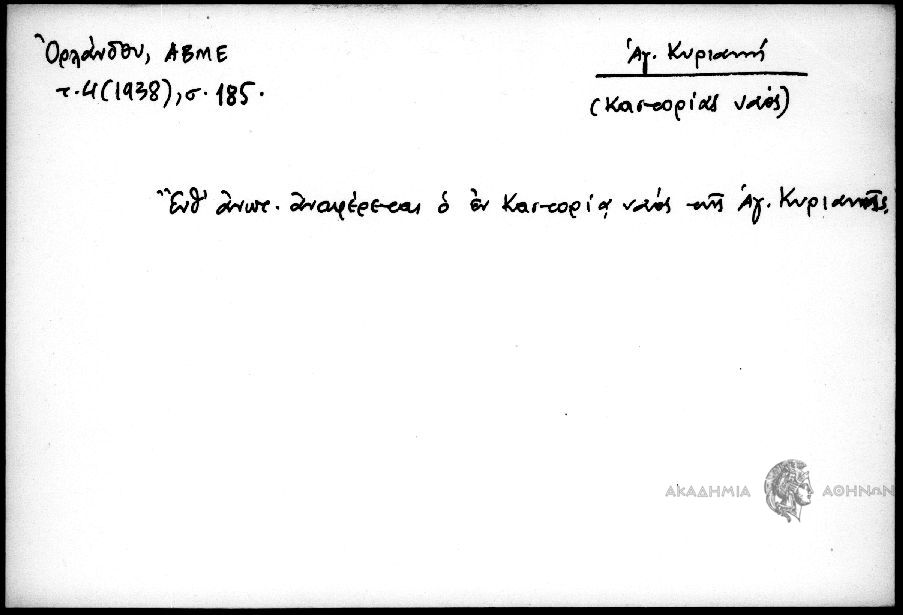 Ὀρλάνδου, ΑΒΜΕ
τ. Δ (1938), σ. 185.
Ἁγ. Κυριακή
(Καστορίας ναός)
Ἔνθ' ἀνωτ. ἀναφέρεται ὁ ἐν Καστορίᾳ ναός τῆς Ἁγ. Κυριακῆς.
ΑΚΑΔΗΜΙΑ ΑΘΗΝΩΝ